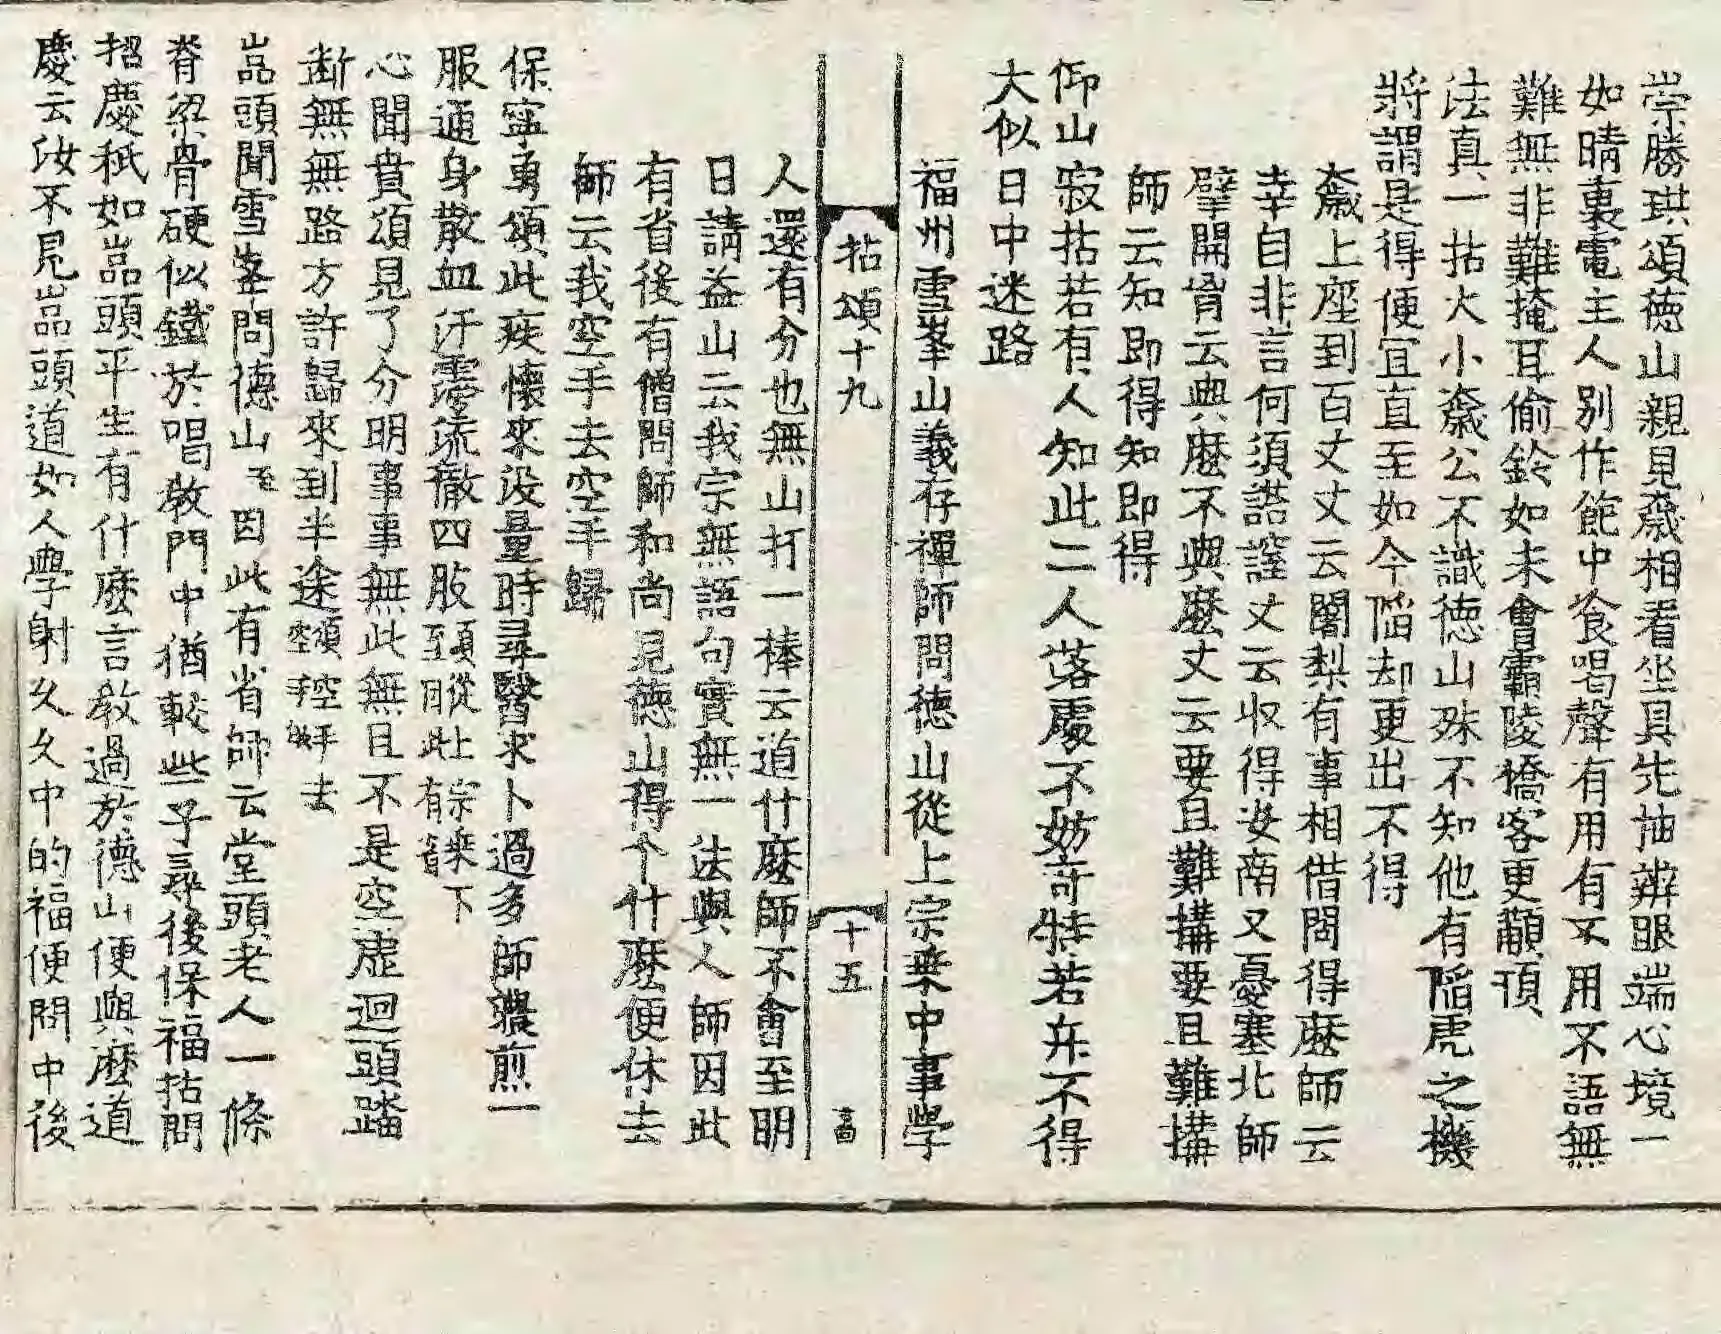 崇勝珙頌德山親見巖相看坐具先抽辨眼端心境一
如晴裏電主人別作飽中飡喝聲有用有不用不語無
難無非難掩耳偷鈴如未會霸陵橋客更顢頇
法真一拈大小巖公不識德山殊不知他有陷虎之機
將謂是得便宜直至如今陷却更出不得
巖上座到百丈丈云闍梨有事相借問得麼師云
幸自非言何須譫𧬊丈云収得安南又憂塞北師
擘開胷云與麼不與麼丈云要且難搆要且難搆
師云知即得知即得
仰山寂拈若有人知此二人落處不妨奇特若弁不得
大似日中迷路
福州雪峯山義存禪師問德山從上宗乘中事學
拈頌十九
十五
人還有分也無山打一棒云道什麼師不會至明
日請益山云我宗無語句實無一法與人師因此
有省後有僧問師和尚見德山得个什麼便休去
師云我空手去空手歸
保寧勇頌此疾懷來没量時尋醫求卜過多師濃煎一
服通身散血汗霶流徹四肢頌從上宗乘下至因此有省
心聞賁頌見了分明事事無此無且不是空虛迴頭踏
斷無無路方許歸來到半途頌空手去空手歸
嵓頭聞雪峯問德山至因此有省師云堂頭老人一條
脊梁骨硬似鐵於唱教門中猶較些子尋後保福拈問
招慶秖如嵓頭平生有什麼言教過於德山便與麼道
慶云汝不見嵓頭道如人學射久久中的福便問中後